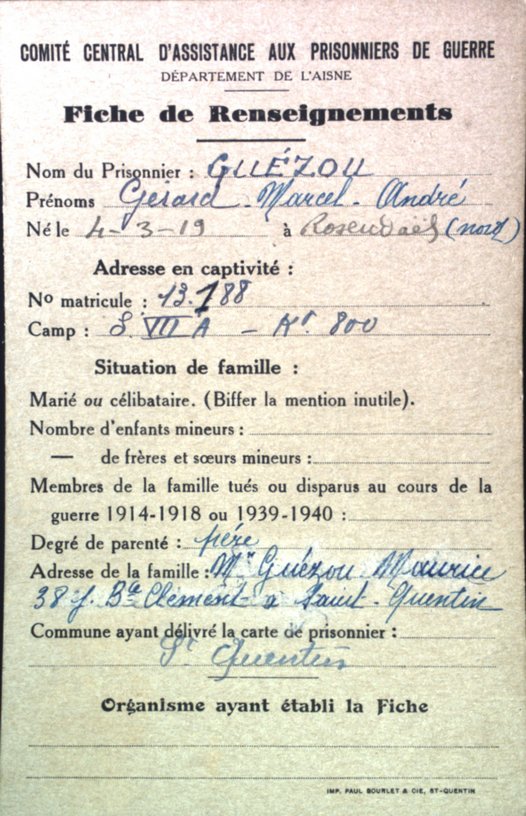 COMITÉ CENTRAL D'ASSISTANCE AUX PRISONNIERS DE GUERRE
DÉPARTEMENT DE L'AISNE
Fiche de Renseignements
Nom du Prisonnier : GUÉZOU
Prénoms Gérard - Marcel - André
Né le 4-3-19 à Rosendaël (nord)
Adresse en captivité :
No matricule : 13.188
Camp : S. VIII A - Kr 800
Situation de famille :
Marié ou célibataire. (Biffer la mention inutile).
Nombre d'enfants mineurs :
— de frères et sœurs mineurs :
Membres de la famille tués ou disparus au cours de la
guerre 1914-1918 ou 1939-1940 :
Degré de parenté : père
Adresse de la famille : Mr Guézou Maurice
38 Clément à Saint-Quentin
Commune ayant délivré la carte de prisonnier :
St Quentin
Organisme ayant établi la Fiche
IMP. PAUL BOURLET & CIE, ST-QUENTIN